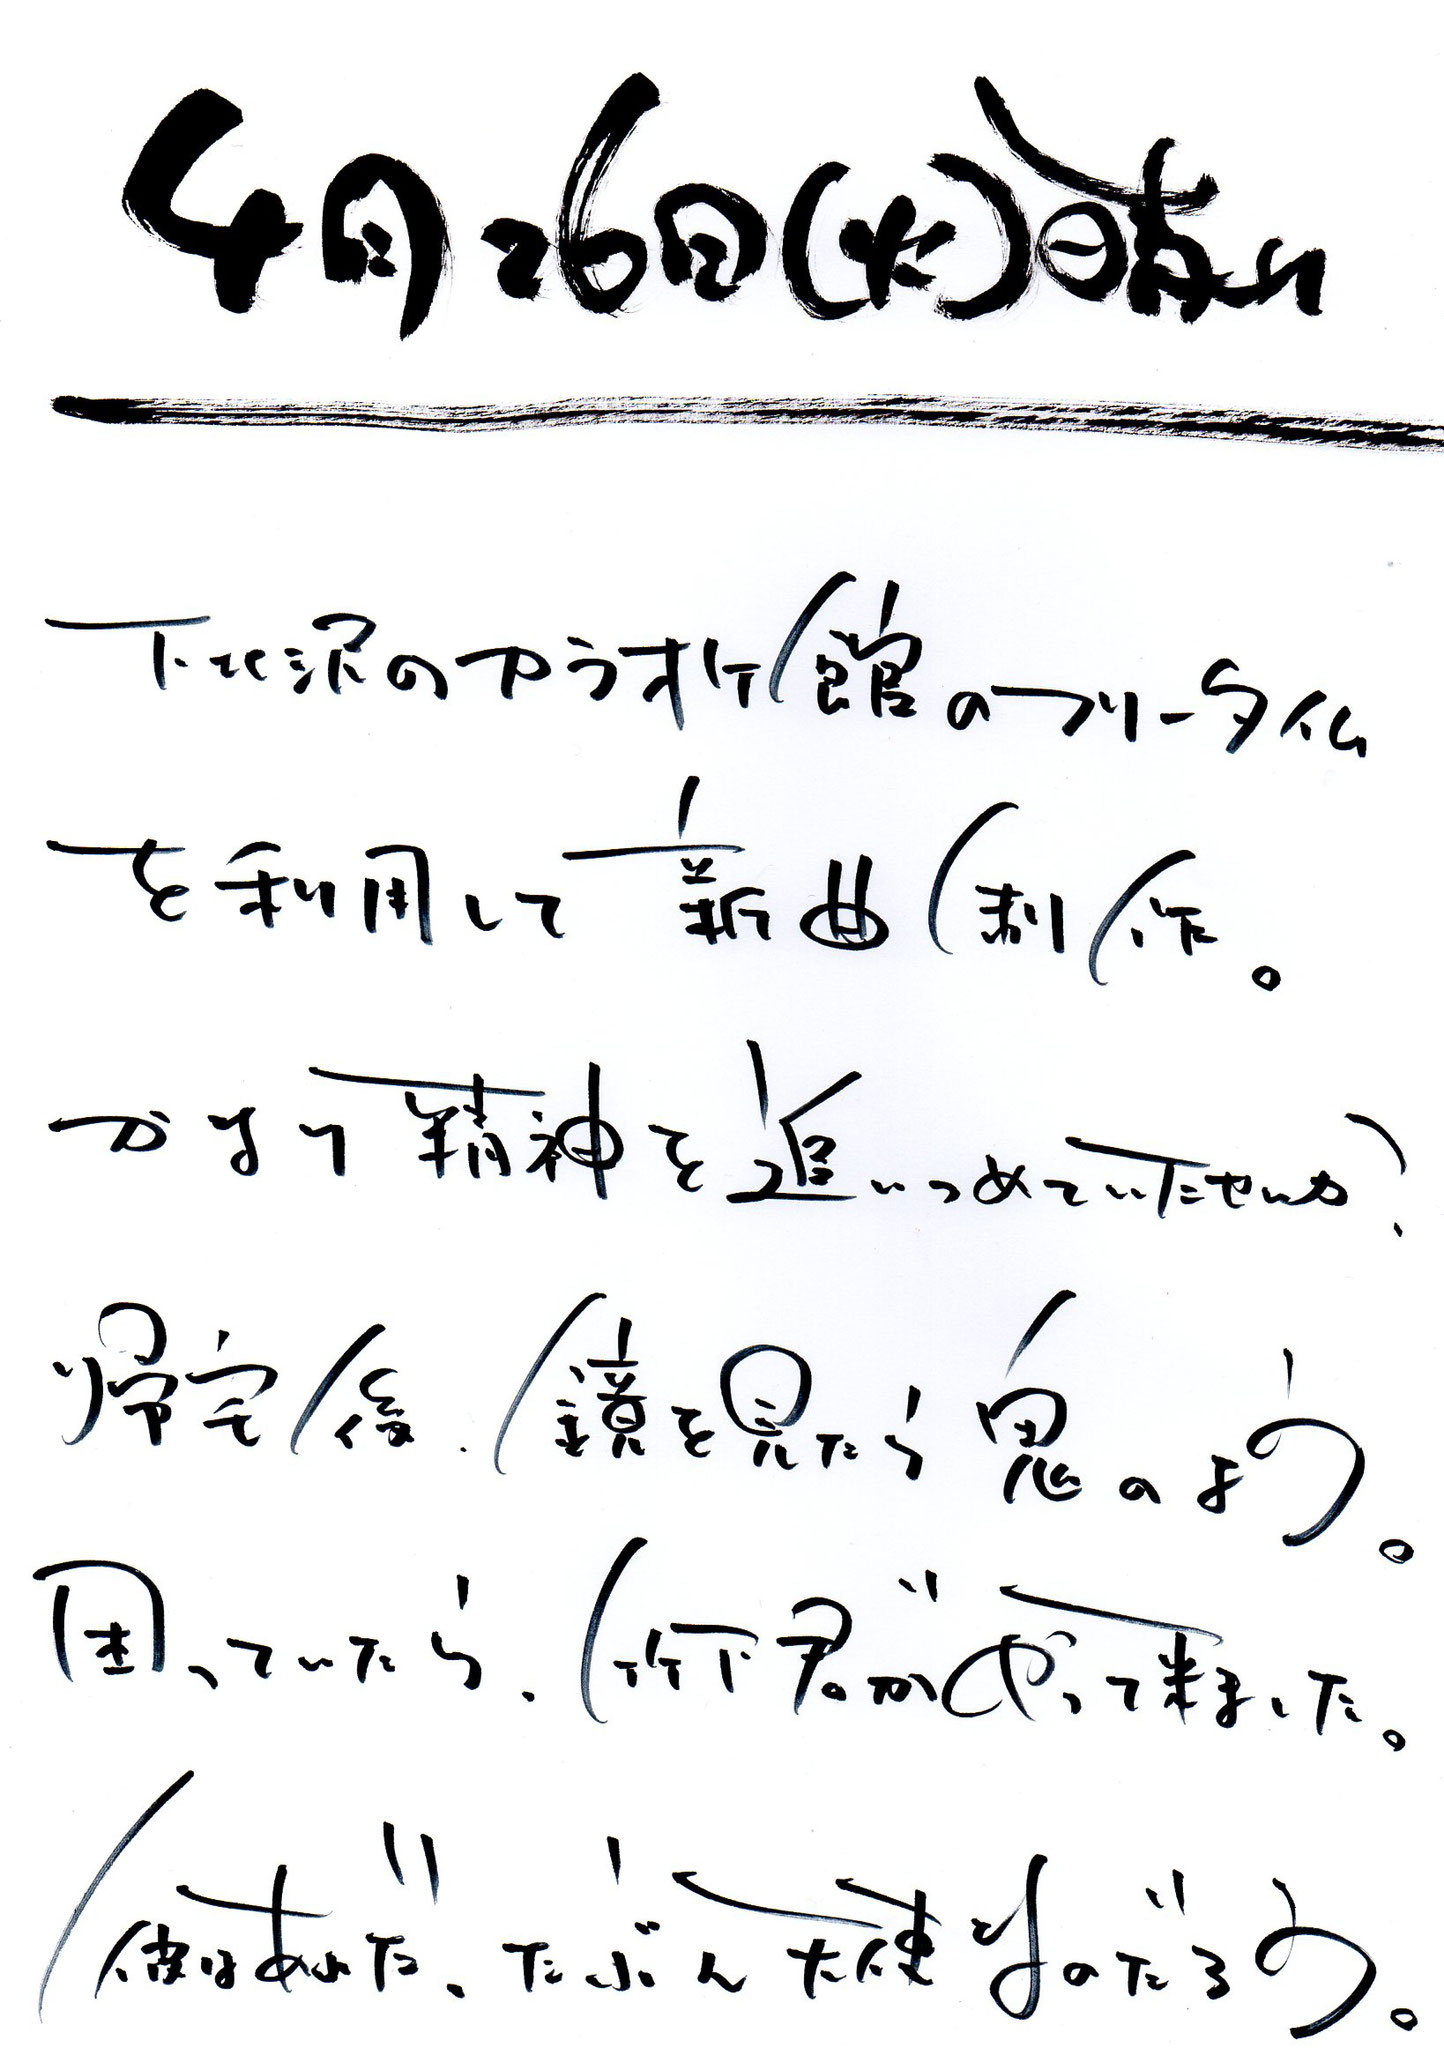 4月26日(火)晴れ
下北沢のカラオケ館のフリータイム
を利用して新曲制作。
かなり精神を追いつめていたせいか、
帰宅後、鏡を見たら鬼のよう。
困っていたら、竹下君がやって来ました。
彼はあれだ、たぶん天使なのだろう。